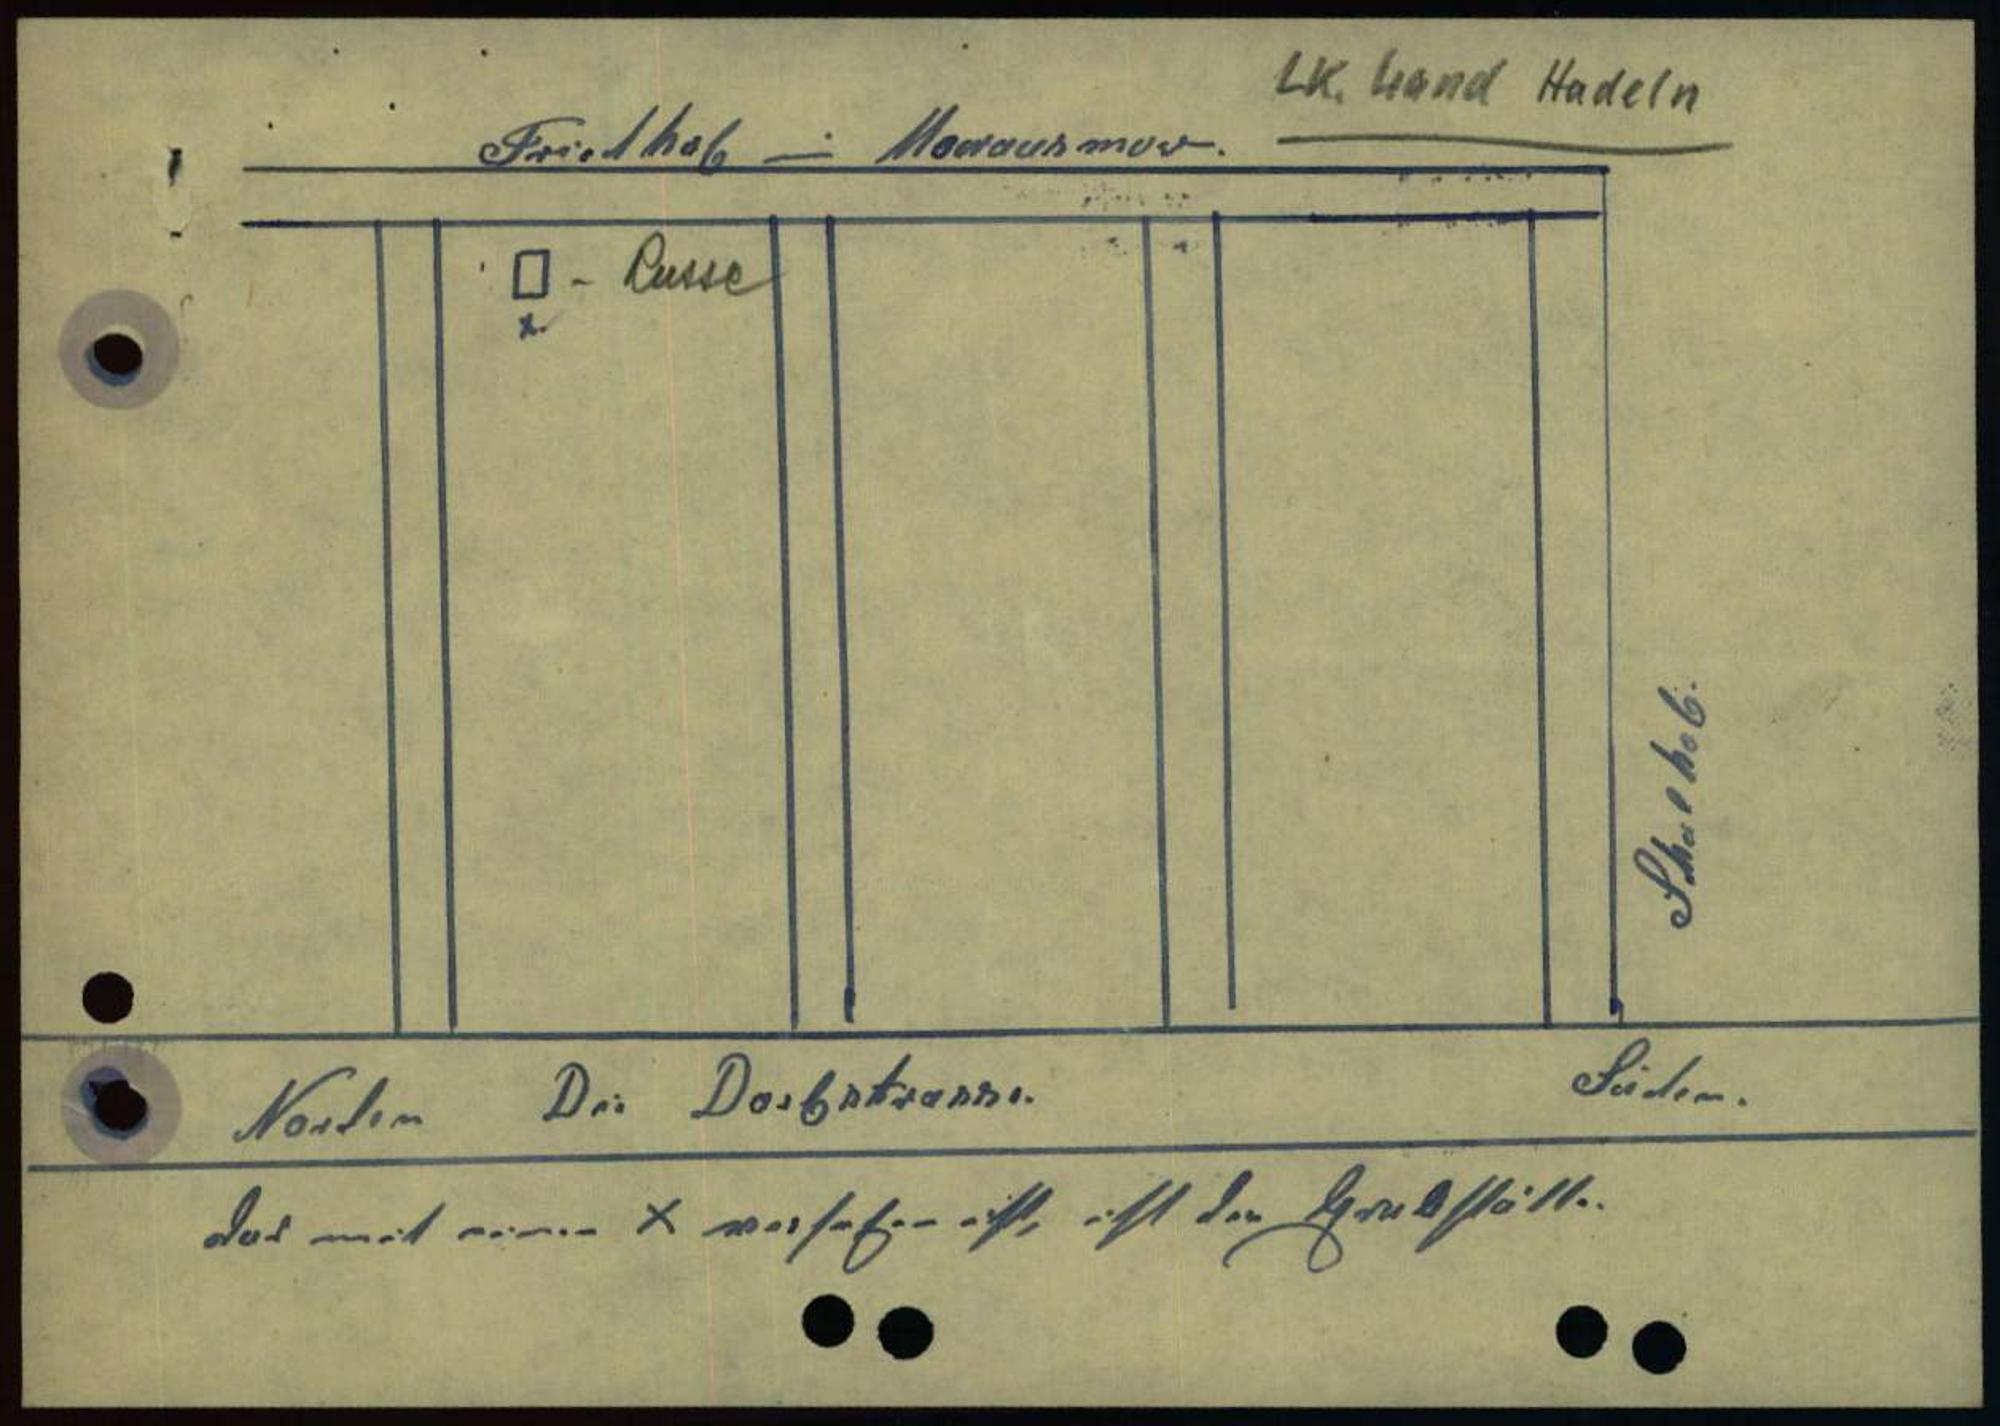 LK. Land Hadeln
Friedhof in Moorausmoor.
- Russe
x.
Schulhof.
Norden Die Dorfstrasse. Süden.
das mit einen X versehen ist, ist die Grabstätte.